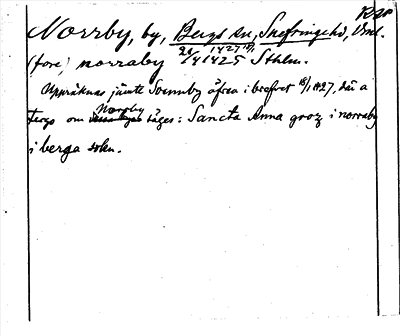 Norrby, by, Bergs sn, Snefringe hd, Vml.
(fore) norraby 20/4 1425 Sthlm.
Uppräknas jämte Svennby äfven i brefvet 18/1 1427, där a
tergo om Norrby säges: Sancta Anna groz i norraby
i berga sokn.